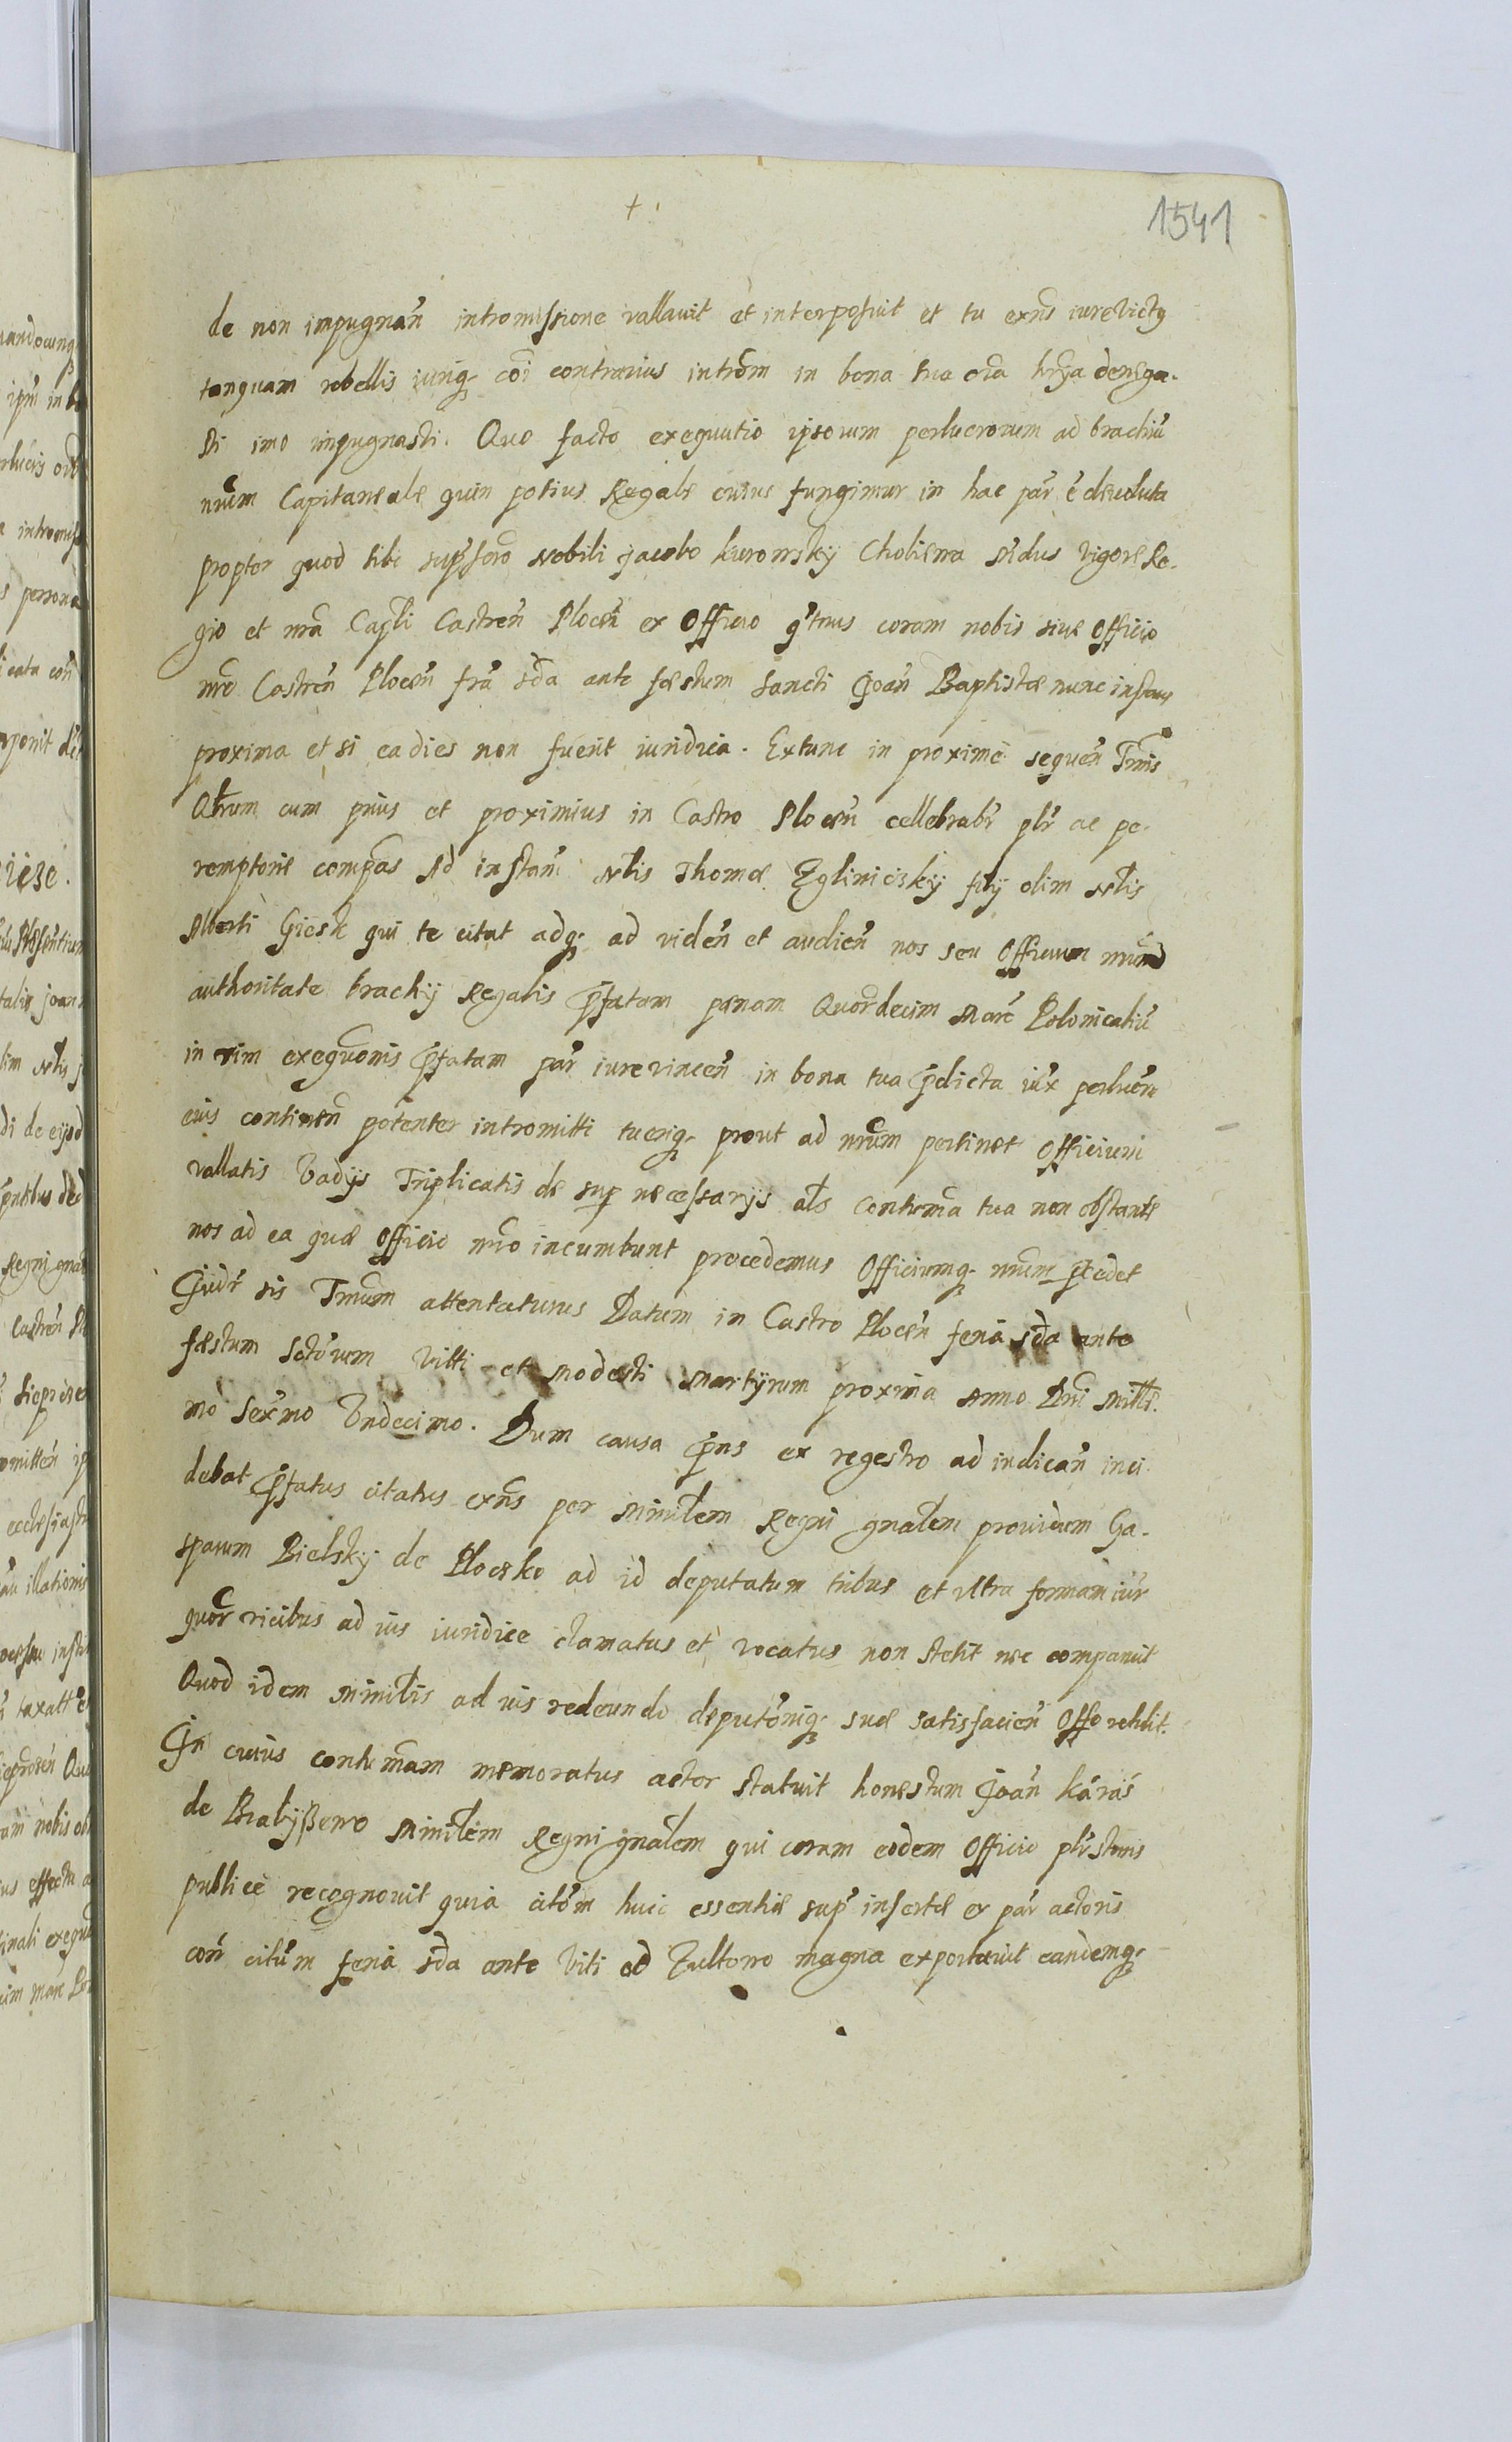 1541
de non impugnan̄ intromissione vallavit et interposuit et tu exn̄s iurevictꝯ
tanquam rebellis iuriq̨ cōi contrarius introm̄ in bona tua oīa hrīa denega-
sti imo impugnasti. Quo facto exequutio ipsorum perlucrorum ad brachiū
nrūm Capitaneale quin potius Regale cuius fungimur in hac par̄ ē deuoluta
propter quod tibi supsscrō Nobili Jacobo kurowsky Choliewa nr̄dus vigore Re-
gio et nr̄a Capli Castren̄ Plocen̄ ex Officio c̄tmus coram nobis siue Officio
nr̄o Castren̄ Plocen̄ frā sdā ante faestum Sancti Joan̄ Baptistae nunc instan̄
proxima et si ea dies non fuerit iuridica. Extunc in proxime sequen̄ Tmīs
Qr̄um cum prius et proximius in Castro Plocen̄ cellebrabr̄ plr̄ ac pe-
remptorie compas Ad instan̄ Nlis Thomae Zglinicisky filij olim Nlis
Alberti Giesk qui te citat adq̨ ad viden̄ et audien̄ nos seu Officium nrūm
authoritate brachij Regalis p̄fatam paenam Quordecim Marc̄ Polonicaliū
in vim exequōnis p̄fatam par̄ iurevincen̄ in bona tua p̄dicta iux̄ perlucra
eius continen̄ potenter intromitti tueriq̨ prout ad nrūm pertinet Officium
vallatis Vadijs Triplicatis de sup necessarijs als contum̄a tua non obstante
nos ad ea quae Officio nr̄o incumbunt procedemus Officiumq̨ nrūm p̄cedet
Judr̄ sis Tmūm attentaturus Datum in Castro Plocen̄ feria sdā ante
faestum Sctōrum Vitti et Modesti Martyrum proxima Anno Dnī Mille-
mo Sexmo Undecimo. Dum causa p̄ns ex regestro ad iudican̄ inci-
debat p̄fatus citatus exn̄s per Minilem Regni gnalem providum Ga-
sparum Bielsky de Plocsko ad id deputatum tribus et ultra formam iur̄
quor̄ vicibus ad ius iuridice clamatus et vocatus non stetit nec comparuit
Quod idem Minilis ad ius redeundo deputōniq̨ suae satisfacien̄ Offo retulit.
In cuius contum̄am memoratus actor statuit honestum Joan̄ káraś
de Bratyßewo Minilem Regni gnalem qui coram eodem Officio plr̄ stans
publice recognovit quia citōm huic essentiae sup̄ insertae ex par̄ actoris
con̄ citūm feria sdā ante Viti ad Zultowo magna exportavit eandemq̨